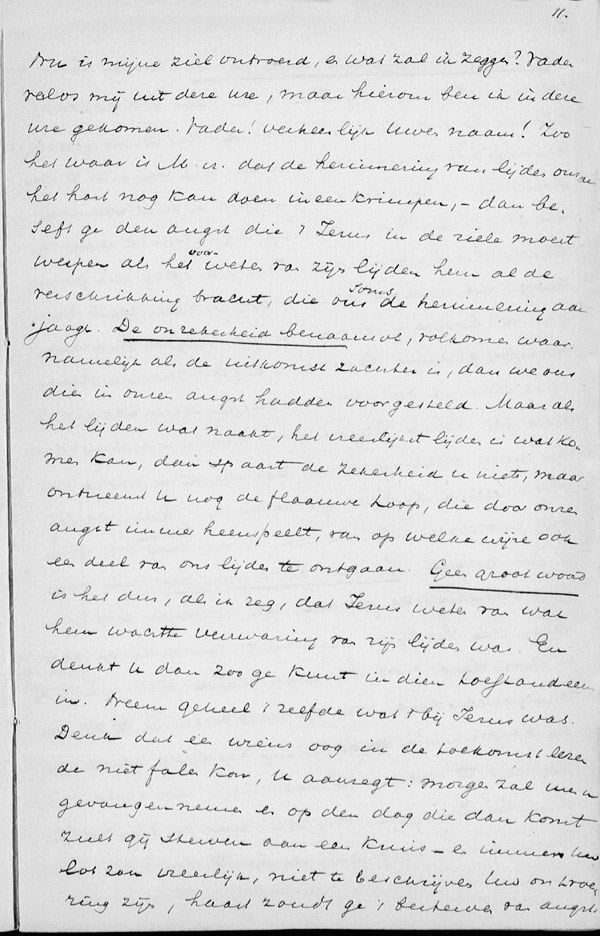 11.
Nu is mijne ziel ontroerd, en wat zal ik zeggen? Vader
verlos mij uit deze ure, maar hierom ben ik in deze
ure gekomen. Vader! verheerlijk Uwen naam! Zoo
het waar is M. dat de herinnering van lijden ons
het hart nog kan doen ineenkrimpen, – dan be-
seft ge den angst die 't Jezus in de ziele moest
werpen als het voor-weten van zijn lijden hem al de
verschrikking bracht, die ons soms de herinnering aan
jaagt. De onzekerheid benaauwt, volkomen waar
namelijk als de uitkomst zachter is, dan we ons
die in onzen angst hadden voorgesteld. Maar als
het lijden wat naakt, het vreeslijkst lijden is wat ko-
men kan, dan spaart de zekerheid u niets, maar
ontneemt U nog de flaauwe hoop, die door onzen
angst immer heenspeelt, van op welke wijze ook
een deel van ons lijden te ontgaan. Geen groot woord
is het dus, als ik zeg, dat Jezus weten van wat
hem wachtte verzwaring van zijn lijden was. En
denkt U dan zoo ge kunt in dien toestand een
in. Neem geheel 't zelfde wat bij Jezus was.
Denk dat een wiens oog in de toekomst lezen
de niet falen kon, U aanzegt: morgen zal men u
gevangen nemen en op den dag die dan komt
zult gij sterven aan een kruis – en immers Uw
lot zou vreeslijk, niet te beschrijven Uw ontroe-
ring zijn, haast zoudt ge 't besterven van angst